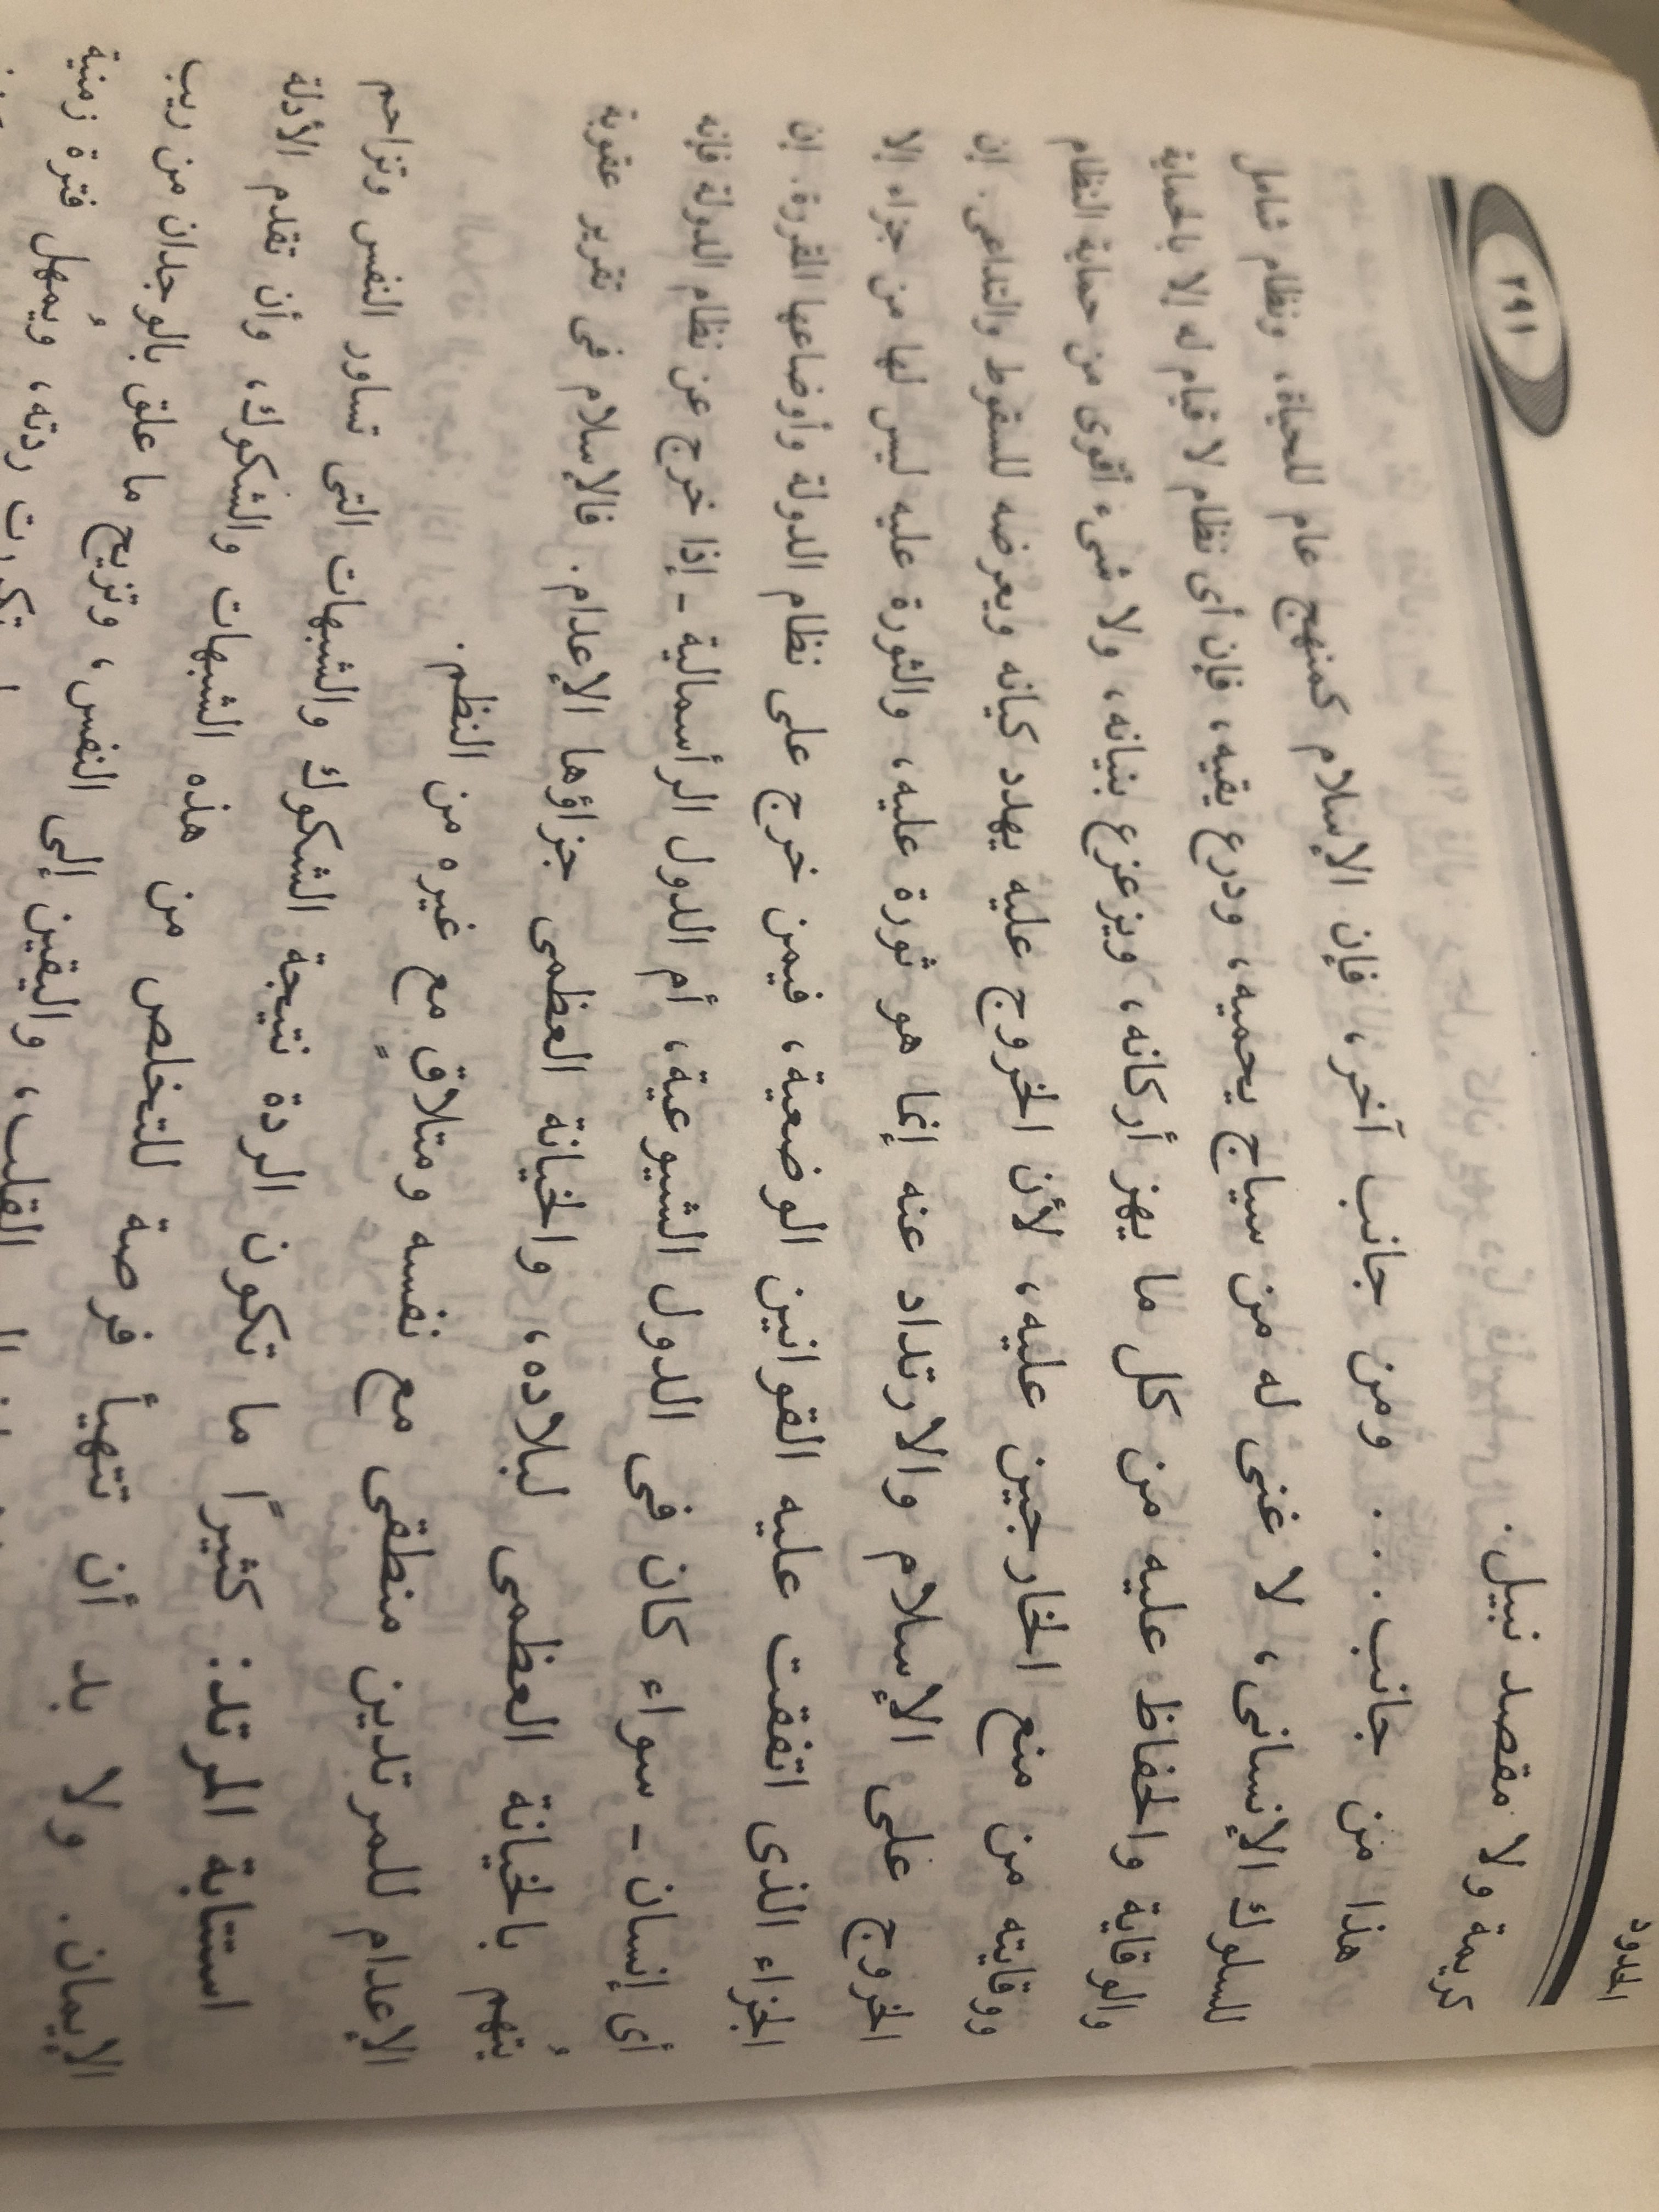 الحدود
٢٩١
كريمة ولا مقصد نبيل.
هذا من جانب . . ومن جانب آخر، فإن الإسلام كمنهج عام للحياة، ونظام شامل
للسلوك الإنسانى، لا غنى له من سياج يحميه، ودرع يقيه، فإن أى نظام لا قيام له إلا بالحماية
والوقاية والحفاظ عليه من كل ما يهز أركانه، ويزعزع بنيانه، ولا شىء أقوى من حماية النظام
ووقايته من منع الخارجين عليه، لأن الخروج عليه يهدد كيانه ويعرضه للسقوط والتداعى. إن
الخروج على الإسلام والارتداد عنه إنما هو ثورة عليه، والثورة عليه ليس لها من جزاء إلا
الجزاء الذى اتفقت عليه القوانين الوضعية، فيمن خرج على نظام الدولة وأوضاعها المقررة. إن
أى إنسان - سواء كان فى الدول الشيوعية، أم الدول الرأسمالية - إذا خرج عن نظام الدولة فإنه
يُتهم بالخيانة العظمى لبلاده، والخيانة العظمى جزاؤها الإعدام. فالإسلام فى تقرير عقوبة
الإعدام للمرتدين منطقى مع نفسه ومتلاقٍ مع غيره من النظم.
استتابة المرتد: كثيرًا ما تكون الردة نتيجة الشكوك والشبهات التى تساور النفس وتزاحم
الإيمان. ولا بد أن تتهيأ فرصة للتخلص من هذه الشبهات والشكوك، وأن تقدم الأدلة
القلب، واليقين إلى النفس، وتزيح ما علق بالوجدان من ريب
ردته، ويُمهل فترة زمنية